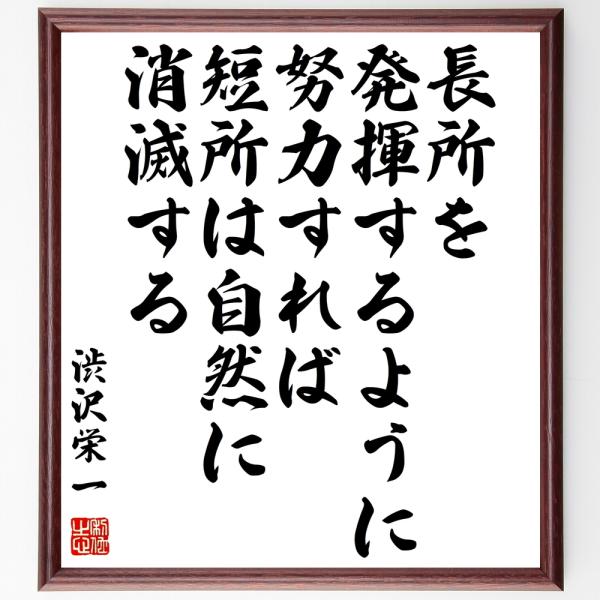 長所を
発揮するように
努力すれば
短所は自然に
消滅する
渋沢栄一